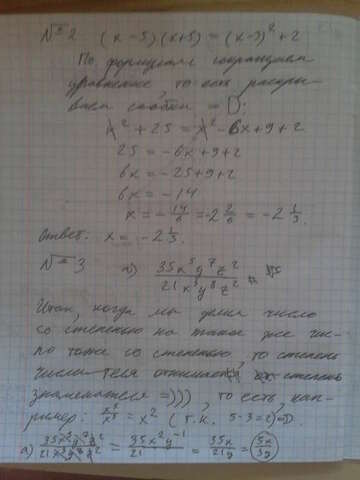 № 2 (x-5)(x+5) = (x-3)² + 2
По формулам сокращаем
уравнение, то есть раскры-
ваем скобки =D:
x² + 25 = x² - 6x + 9 + 2
25 = -6x + 9 + 2
6x = -25 + 9 + 2
6x = -14
x = -14/6 = -2 2/6 = -2 1/3.
Ответ: x = -2 1/3.
№ 3 а) 35x⁵y⁷z²/21x³y⁸z²
Итак, когда мы делим число
со степенью на такое же чис-
ло тоже со степенью, то степень
числителя степень
знаменателя =))), то есть, нап-
ример: x⁵/x³ = x² (т.к. 5-3=2)=D.
а) 35x⁵y⁷z²/21x³y⁸z² = 35x²y⁻¹/21 = 35x/21y = 5x/3y